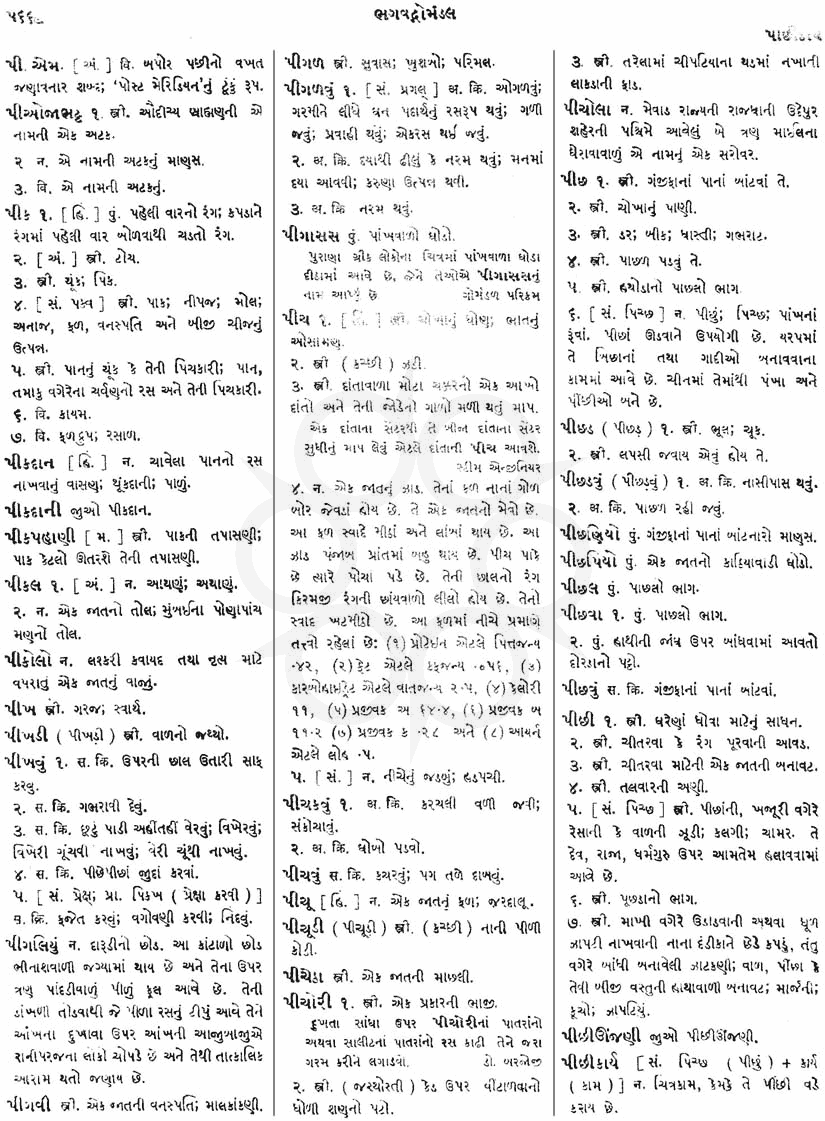 ૫૬૬૮
ભગવદ્ગોમંડલ
પીછીકાર્ય
પી. એમ. [ અં. ] વિ. બપોર પછીનો વખત
જણાવનાર શબ્દ; ‘પોસ્ટ મેરિડિયન’નું ટૂંકું રૂપ.
પીઓજાભટ્ટ ૧. સ્ત્રી. ઔદીચ્ય બ્રાહ્મણની એ
નામની એક અટક.
૨ ન. એ નામની અટકનું માણસ.
૩. વિ. એ નામની અટકનું.
પીક ૧. [ હિં. ] પું. પહેલી વારનો રંગ; કપડાને
રંગમાં પહેલી વાર બોળવાથી ચડતો રંગ.
૨. [ અં. ] સ્ત્રી. ટોચ.
૩. સ્ત્રી. થૂંક; પિક.
૪. [ સં. પક્વ ] સ્ત્રી. પાક; નીપજ; મોલ;
અનાજ, ફળ, વનસ્પતિ અને બીજી ચીજનું
ઉત્પન્ન.
૫. સ્ત્રી. પાનનું થૂંક કે તેની પિચકારી; પાન,
તમાકુ વગેરેના ચર્વણનો રસ અને તેની પિચકારી.
૬. વિ. કાયમ.
૭. વિ. ફળદ્રુપ; રસાળ.
પીકદાન [ હિં. ] ન. ચાવેલા પાનનો રસ
નાખવાનું વાસણ; થૂંકદાની; પાળું.
પીકદાની જુઓ પીકદાન.
પીકપહાણી [ મ. ] સ્ત્રી. પાકની તપાસણી;
પાક કેટલો ઊતરશે તેની તપાસણી.
પીકલ ૧. [ અં. ] ન. આથણું; અથાણું.
૨. ન. એક જાતનો તોલ; મુંબઈના પોણાપાંચ
મણનો તોલ.
પીકોલો ન. લશ્કરી કવાયદ તથા નૃત્ય માટે
વપરાતું એક જાતનું વાજું.
પીખ સ્ત્રી. ગરજ; સ્વાર્થ.
પીખડી ( પીખડ઼ી ) સ્ત્રી. વાળનો જથ્થો.
પીખવું ૧. સ. ક્રિ. ઉપરની છાલ ઉતારી સાફ
કરવું.
૨. સ. ક્રિ. ગભરાવી દેવું.
૩. સ. ક્રિ. છૂટું પાડી અહીંતહીં વેરવું; વિખેરવું;
વિખેરી ગૂંચવી નાખવું; વેરી ચૂંથી નાખવું.
૪. સ. ક્રિ. પીછેપીછાં જુદાં કરવાં.
૫. [ સં. પ્રેક્ષ; પ્રા. પિક્ખ ( પ્રેક્ષા કરવી ) ]
સ. ક્રિ. ફજેત કરવું; વગોવણી કરવી; નિંદવું.
પીગલિયું ન. દારૂડીનો છોડ. આ કાંટાળો છોડ
ભીનાશવાળી જગ્યામાં થાય છે અને તેના ઉપર
ત્રણ પાંદડીવાળું પીળું ફૂલ આવે છે. તેની
ડાંખળી તોડવાથી જે પીળા રસનું ટીપું આવે તેને
આંખના દુખાવા ઉપર આંખની આજુબાજુએ
રાનીપરજના લોકો ચોપડે છે અને તેથી તાત્કાલિક
આરામ થતો જણાય છે.
પીગવી સ્ત્રી. એક જાતની વનસ્પતિ; માલકાંકણી.
પીગળ સ્ત્રી. સુવાસ; ખુશબો; પરિમલ.
પીગળવું ૧. [ સં. પ્રગલ્ ] અ. ક્રિ. ઓગળવું;
ગરમીને લીધે ઘન પદાર્થનું રસરૂપ થવું; ગળી
જવું; પ્રવાહી થવું; એકરસ થઈ જવું.
૨. અ. ક્રિ. દયાથી ઢીલું કે નરમ થવું; મનમાં
દયા આવવી; કરુણા ઉત્પન્ન થવી.
૩. અ. ક્રિ નરમ થવું.
પીગાસસ પું. પાંખવાળો ઘોડો.
પુરાણા ગ્રીક લોકોના ચિત્રમાં પાંખવાળા ઘોડા
દીઠામાં આવે છે, જેને તેઓએ પીગાસસનું
નામ આપ્યું છે ગોમંડળ પરિક્રમ
પીચ ૧. [ હિં. ] સ્ત્રી. ચોખાનું ધોણ; ભાતનું
ઓસામણ.
૨. સ્ત્રી ( કચ્છી ) ઝટી.
૩. સ્ત્રી. દાંતાવાળા મોટા ચક્કરનો એક આખો
દાંતો અને તેની જોડેનો ગાળો મળી થતું માપ.
એક દાંતાના સેંટરથી તે બીજા દાંતાના સેંટર
સુધીનું માપ લેવું એટલે દાંતાની પીચ આવશે.
સ્ટીમ એન્જીનિયર
૪. ન. એક જાતનું ઝાડ. તેનાં ફળ નાનાં ગોળ
બોર જેવડાં હોય છે. તે એક જાતનો મેવો છે.
આ ફળ સ્વાદે મીઠાં અને લાંબાં થાય છે. આ
ઝાડ પંજાબ પ્રાંતમાં બહુ થાય છે. પીચ પાકે
છે ત્યારે પોચાં પડે છે. તેની છાલનો રંગ
કિરમજી રંગની છાંયવાળો લીલો હોય છે. તેનો
સ્વાદ ખટમીઠો છે. આ ફળમાં નીચે પ્રમાણે
તત્ત્વો રહેલાં છે: (૧) પ્રોટેઇન એટલે પિત્તજન્ય
·૪૨, (૨) ફેટ એટલે કફજન્ય ·૦૫૬, (૩)
કારબોહાઇડ્રેટ એટલે વાતજન્ય ૨·૫, (૪) કેલોરી
૧૧, (૫) પ્રજીવક અ ૬૪·૪, (૬) પ્રજીવક બ
૧૧·૨ (૭) પ્રજીવક ક ·૨૮ અને (૮) આયર્ન
એટલે લોહ ·૫.
૫. [ સં. ] ન. નીચેનું જડબું; હડપચી.
પીચકવું ૧. અ. ક્રિ. કરચલી વળી જવી;
સંકોચાવું.
૨. અ. ક્રિ. ઘોબો પડવો.
પીચવું સ. ક્રિ. કચરવું; પગ તળે દાબવું.
પીચૂ [ હિં. ] ન. એક જાતનું ફળ; જરદાલૂ.
પીચૂડી ( પીચૂડ઼ી ) સ્ત્રી. ( કચ્છી ) નાની પીળી
કોડી.
પીચેડા સ્ત્રી. એક જાતની માછલી.
પીચોરી ૧. સ્ત્રી. એક પ્રકારની ભાજી.
દુખતા સાંધા ઉપર પીચોરીનાં પાતરાંનો
અથવા સાલીટનાં પાતરાંનો રસ કાઢી તેને જરા
ગરમ કરીને લગાડવો. ડો. બરજોજી
૨. સ્ત્રી. ( જરથોસ્તી ) કેડ ઉપર વીંટાળવાનો
ધોળી શણનો પટો.
૩. સ્ત્રી. તરેલામાં ચીપટિયાના થડમાં નખાની
લાકડાની ફાડ.
પીચોલા ન. મેવાડ રાજ્યની રાજધાની ઉદેપુર
શહેરની પશ્ચિમે આવેલું બે ત્રણ માઈલના
ઘેરાવાવાળું એ નામનું એક સરોવર.
પીછ ૧. સ્ત્રી. ગંજીફાનાં પાનાં બાંટવાં તે.
૨. સ્ત્રી. ચોખાનું પાણી.
૩. સ્ત્રી. ડર; બીક; ધાસ્તી; ગભરાટ.
૪. સ્ત્રી. પાછળ પડવું તે.
૫. સ્ત્રી. હથોડાનો પાછલો ભાગ
૬. [ સં. પિચ્છ ] ન. પીંછું; પિચ્છ; પાંખનાં
રૂંવાં. પીછાં ઊડવાને ઉપયોગી છે. યરપમાં
તે બિછાનાં તથા ગાદીઓ બનાવવાના
કામમાં આવે છે. ચીનમાં તેમાંથી પંખા અને
પીંછીઓ બને છે.
પીછડ ( પીછડ઼ ) ૧. સ્ત્રી. ભૂલ; ચૂક.
૨. સ્ત્રી. લપસી જવાય એવું હોય તે.
પીછડવું ( પીછડ઼વું ) ૧. અ. ક્રિ. નાસીપાસ થવું.
૨. અ. ક્રિ. પાછળ રહી જવું.
પીછણિયો પું. ગંજીફાનાં પાનાં બાંટનારો માણસ.
પીછપિયો પું. એક જાતનો કાઠિયાવાડી ઘોડો.
પીછલ પું. પાછલો ભાગ.
પીછવા ૧. પું. પાછલો ભાગ.
૨. પું. હાથીની જાંઘ ઉપર બાંધવામાં આવતો
દોરડાનો પટ્ટો.
પીછવું સ. ક્રિ. ગંજીફાનાં પાનાં બાંટવાં.
પીછી ૧. સ્ત્રી. ઘરેણાં ધોવા માટેનું સાધન.
૨. સ્ત્રી. ચીતરવા કે રંગ પૂરવાની આવડ.
૩. સ્ત્રી. ચીતરવા માટેની એક જાતની બનાવટ.
૪. સ્ત્રી. તલવારની અણી.
૫. [ સં. પિચ્છ ] સ્ત્રી. પીછાંની, ખજૂરી વગેરે
રેસાની કે વાળની ઝૂડી; કલગી; ચામર. તે
દેવ, રાજા, ધર્મગુરુ ઉપર આમતેમ હલાવવામાં
આવે છે.
૬. સ્ત્રી. પૂછડાનો ભાગ.
૭. સ્ત્રી. માખી વગેરે ઉડાડવાની અથવા ધૂળ
ઝાપટી નાખવાની નાના દંડીકાને છેડે કપડું, તંતુ
વગેરે બાંધી બનાવેલી ઝાટકણી; વાળ, પીંછા કે
તેવી બીજી વસ્તુની હાથાવાળી બનાવટ; માર્જની;
કૂચો; ઝાપટિયું.
પીછીઉંજણી જુઓ પીછીઊંજણી.
પીછીકાર્ય [ સં. પિચ્છ ( પીછું ) + કાર્ય
( કામ ) ] ન. ચિત્રકામ, કેમકે તે પીંછી વડે
કરાય છે.